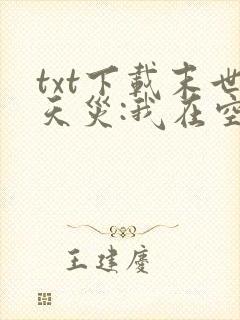 txt下载末世
天灾:我在空
王建庆